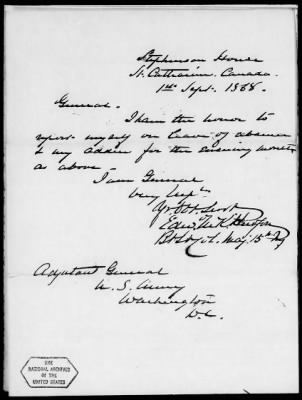 Stephenson House
St. Catharines. Canada.
1st Sept. 1868.
General.
I have the honor to
report myself on leave of absence
& my address for the ensuing month
as above.
I am General
Very
Yr. Obt. Servt
Edw.
Bt Lt Col. Maj. 15th
Adjutant General
U. S. Army
Washington
D.C.
THE
NATIONAL ARCHIVES
OF THE
UNITED STATES